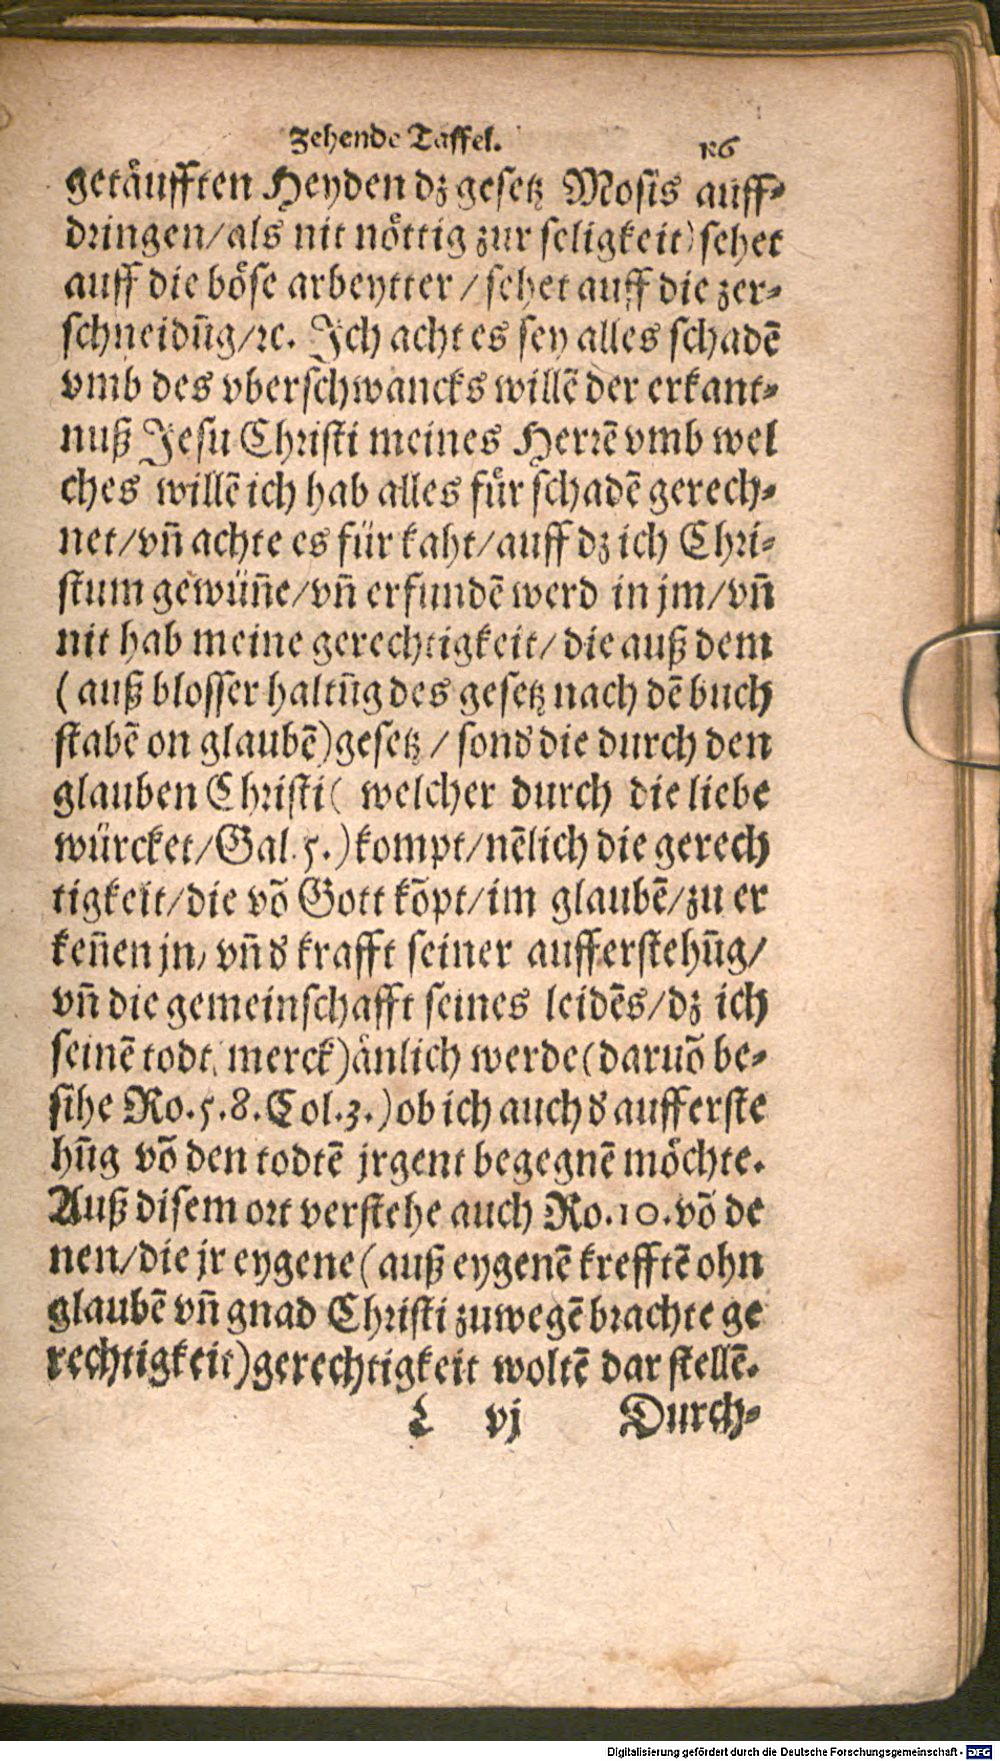 Zehende Taffel.
126
getåufften Heyden dz gesetz Mosis auff⸗
dringen/als nit nöttig zur seligkeit) sehet
auff die böse arbeytter / sehet auff die zer⸗
schneidūg/ꝛc. Jch acht es sey alles schadē
vmb des vberschwancks willē der erkant⸗
nuß Jesu Christi meines Herrē vmb wel
ches willē ich hab alles fůr schadē gerech⸗
net/vñ achte es für kaht/auff dz ich Chri⸗
stum gewüñe/vñ erfundē werd in jm/vñ
nit hab meine gerechtigkeit/ die auß dem
( auß blosser haltūg des gesetz nach dē buch
stabē on glaubē)gesetz / sond die durch den
glauben Christi( welcher durch die liebe
würcket/Gal. 5.) kompt/nēlich die gerech
tigkeit/die võ Gott kõpt/im glaubē/zu er
keñen jn, vñ d krafft seiner aufferstehūg/
vñ die gemeinschafft seines leidēs/dz ich
seinē todt( merck)änlich werde(daruõ be⸗
sihe Ro. 5. 8. Col. 3.) ob ich auch d aufferste
hūg võ den todtē jrgent begegnē möchte.
Auß disem ort verstehe auch Ro. 10. võ de
nen/die jr eygene (auß eygenē krefftē ohn
glaubē vñ gnad Christi zuwegē brachte ge
rechtigkeit)gerechtigkeit woltē dar stellē.
vj Durch⸗
Digitalisierung gefördert durch die Deutsche Forschungsgemeinschaft - DFG